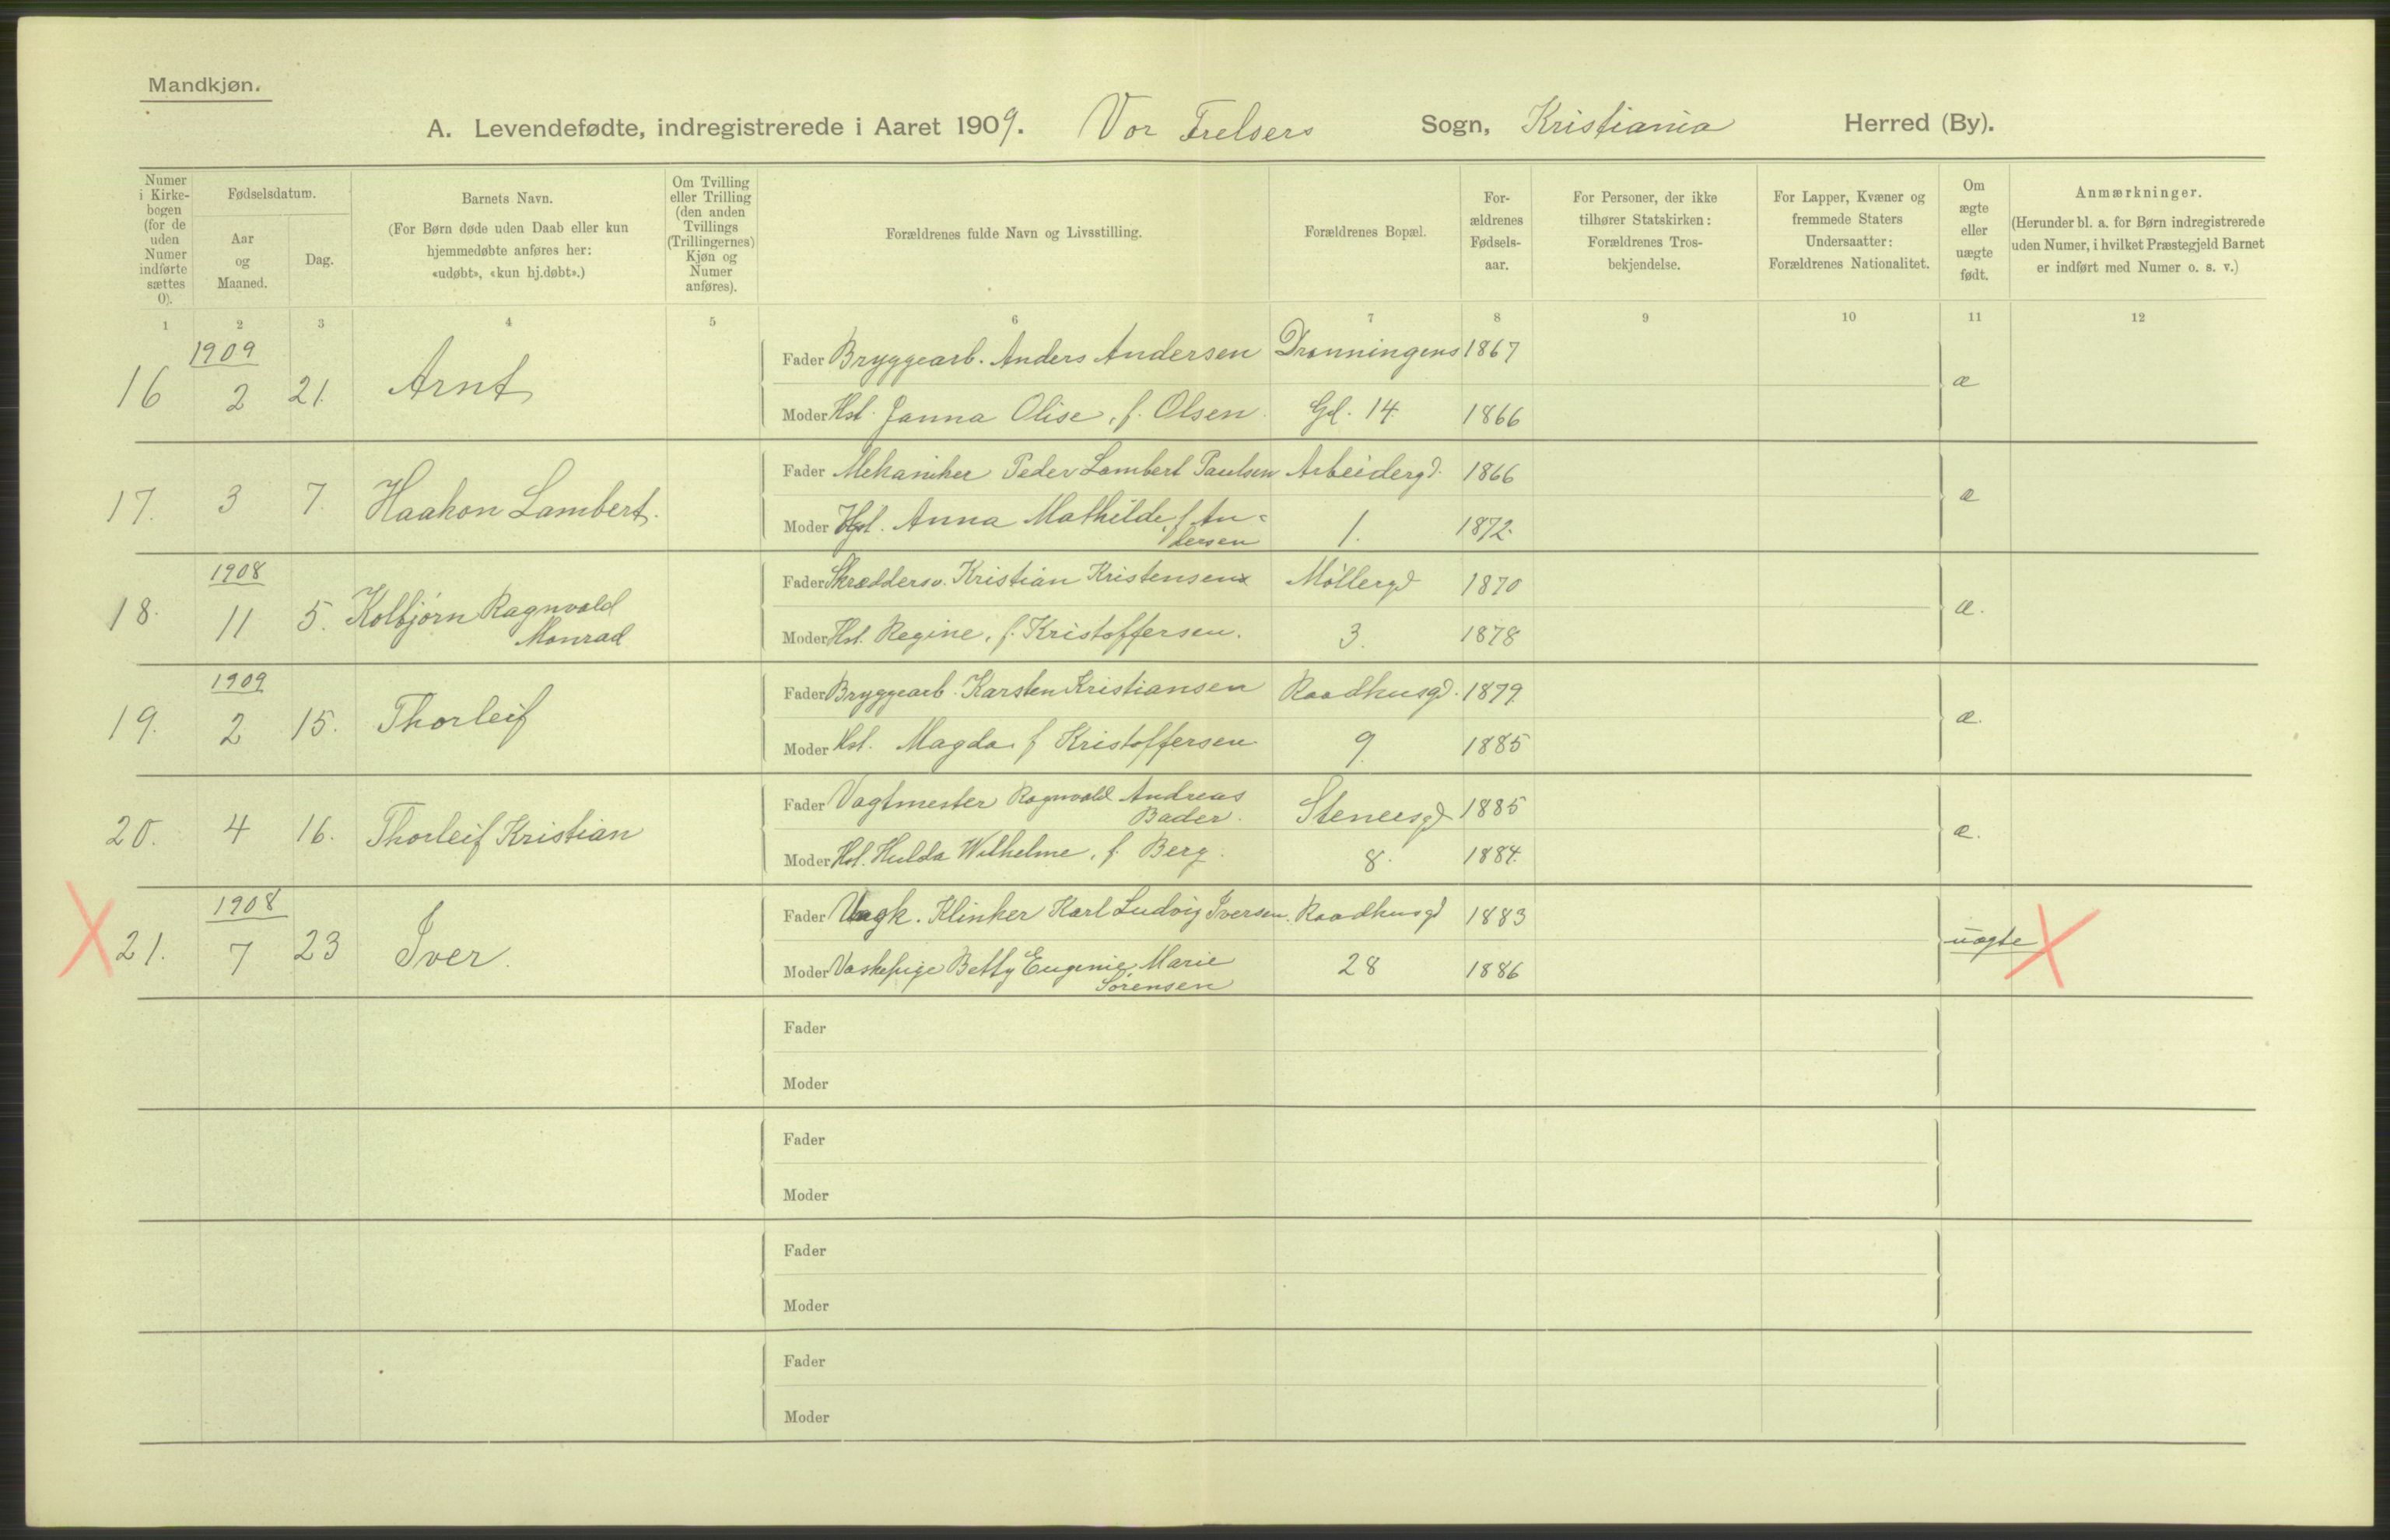 Mandkjøn.
A. Levendefødte, indregistrerede i Aaret 1909. Vor Frelsers Sogn, Kristiania Herred (By).
Numer i Kirkebogen (for de uden Numer indførte sættes 0).
Fødselsdatum.
Aar og Maaned.
Dag.
Barnets Navn.
(For Børn døde uden Daab eller kun
hjemmedøbte anføres her:
«udøbt», «kun hj.døbt».)
Om Tvilling
eller Trilling
(den anden
Tvillings
(Trillingernes)
Kjøn og
Numer
anføres).
Forældrenes fulde Navn og Livsstilling.
Forældrenes Bopæl.
For-
ældrenes
Fødsels-
aar.
For Personer, der ikke
tilhører Statskirken:
Forældrenes Tros-
bekjendelse.
For Lapper, Kvæner og
fremmede Staters
Undersaatter:
Forældrenes Nationalitet.
Om
ægte
eller
uægte
født.
Anmærkninger.
(Herunder bl. a. for Børn indregistrerede
uden Numer, i hvilket Præstegjeld Barnet
er indført med Numer o. s. v.)
1 2 3 4 5 6 7 8 9 10 11 12
1909
16 2 21. Arnt
Fader Bryggearb. Anders Andersen Dronningens 1867
Moder Hst. Janna Olise, f. Olsen. Gd. 14. 1866
æ
17. 3 7. Haakon Lambert.
Fader Mekaniker Peder Lambert Paulsen Arbeidergd. 1866
Moder Hst. Anna Mathilde, f. An-
dersen 1. 1872.
æ
1908
18. 11 5. Kolbjørn Ragnvald
Monrad
Fader Skræddersv. Kristian Kristensen Møllergd 1870
Moder Hst. Regine, f. Kristoffersen. 3. 1878
æ.
1909
19. 2 15. Thorleif
Fader Bryggearb. Karsten Kristiansen Raadhusgd. 1879.
Moder Hst. Magda, f Kristoffersen. 9. 1885
æ.
20. 4 16. Thorleif Kristian
Fader Vagtmester Ragnvald Andreas
Bader. Stenersgd 1885
Moder Hst. Hulda Wilhelme, f. Berg. 8. 1884.
æ.
1908
21. 7 23 Iver.
Fader Klinker Karl Ludvig Iversen. Raadhusgd 1883
Moder Vaskepige Betty Eugenie Marie
Sørensen 28 1886
uægte
Fader
Moder
Fader
Moder
Fader
Moder
Fader
Moder